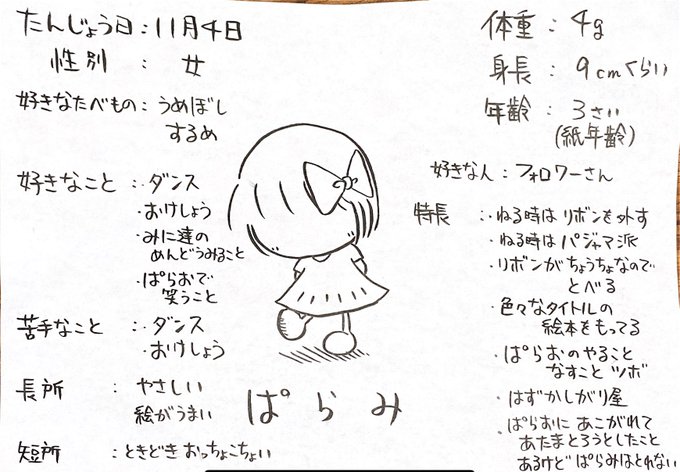 たんじょう日：11月4日
性別 ： 女
好きなたべもの：うめぼし
するめ
好きなこと ：・ダンス
・おけしょう
・みに達の
めんどうみること
・ぱらおで
笑うこと
苦手なこと ：・ダンス
・おけしょう
長所 ： やさしい
絵がうまい
短所 ：ときどきおっちょこちょい
ぱらみ
体重：4g
身長：9cmくらい
年齢：3さい
(紙年齢)
好きな人：フォロワーさん
特長 ：・ねる時はリボンを外す
・ねる時はパジャマ派
・リボンがちょうちょなので
とべる
・色々なタイトルの
絵本をもってる
・ぱらおのやること
なすことツボ
・はずかしがり屋
・ぱらおにあこがれて
あたまとろうとしたこと
あるけどぱらみはとれない